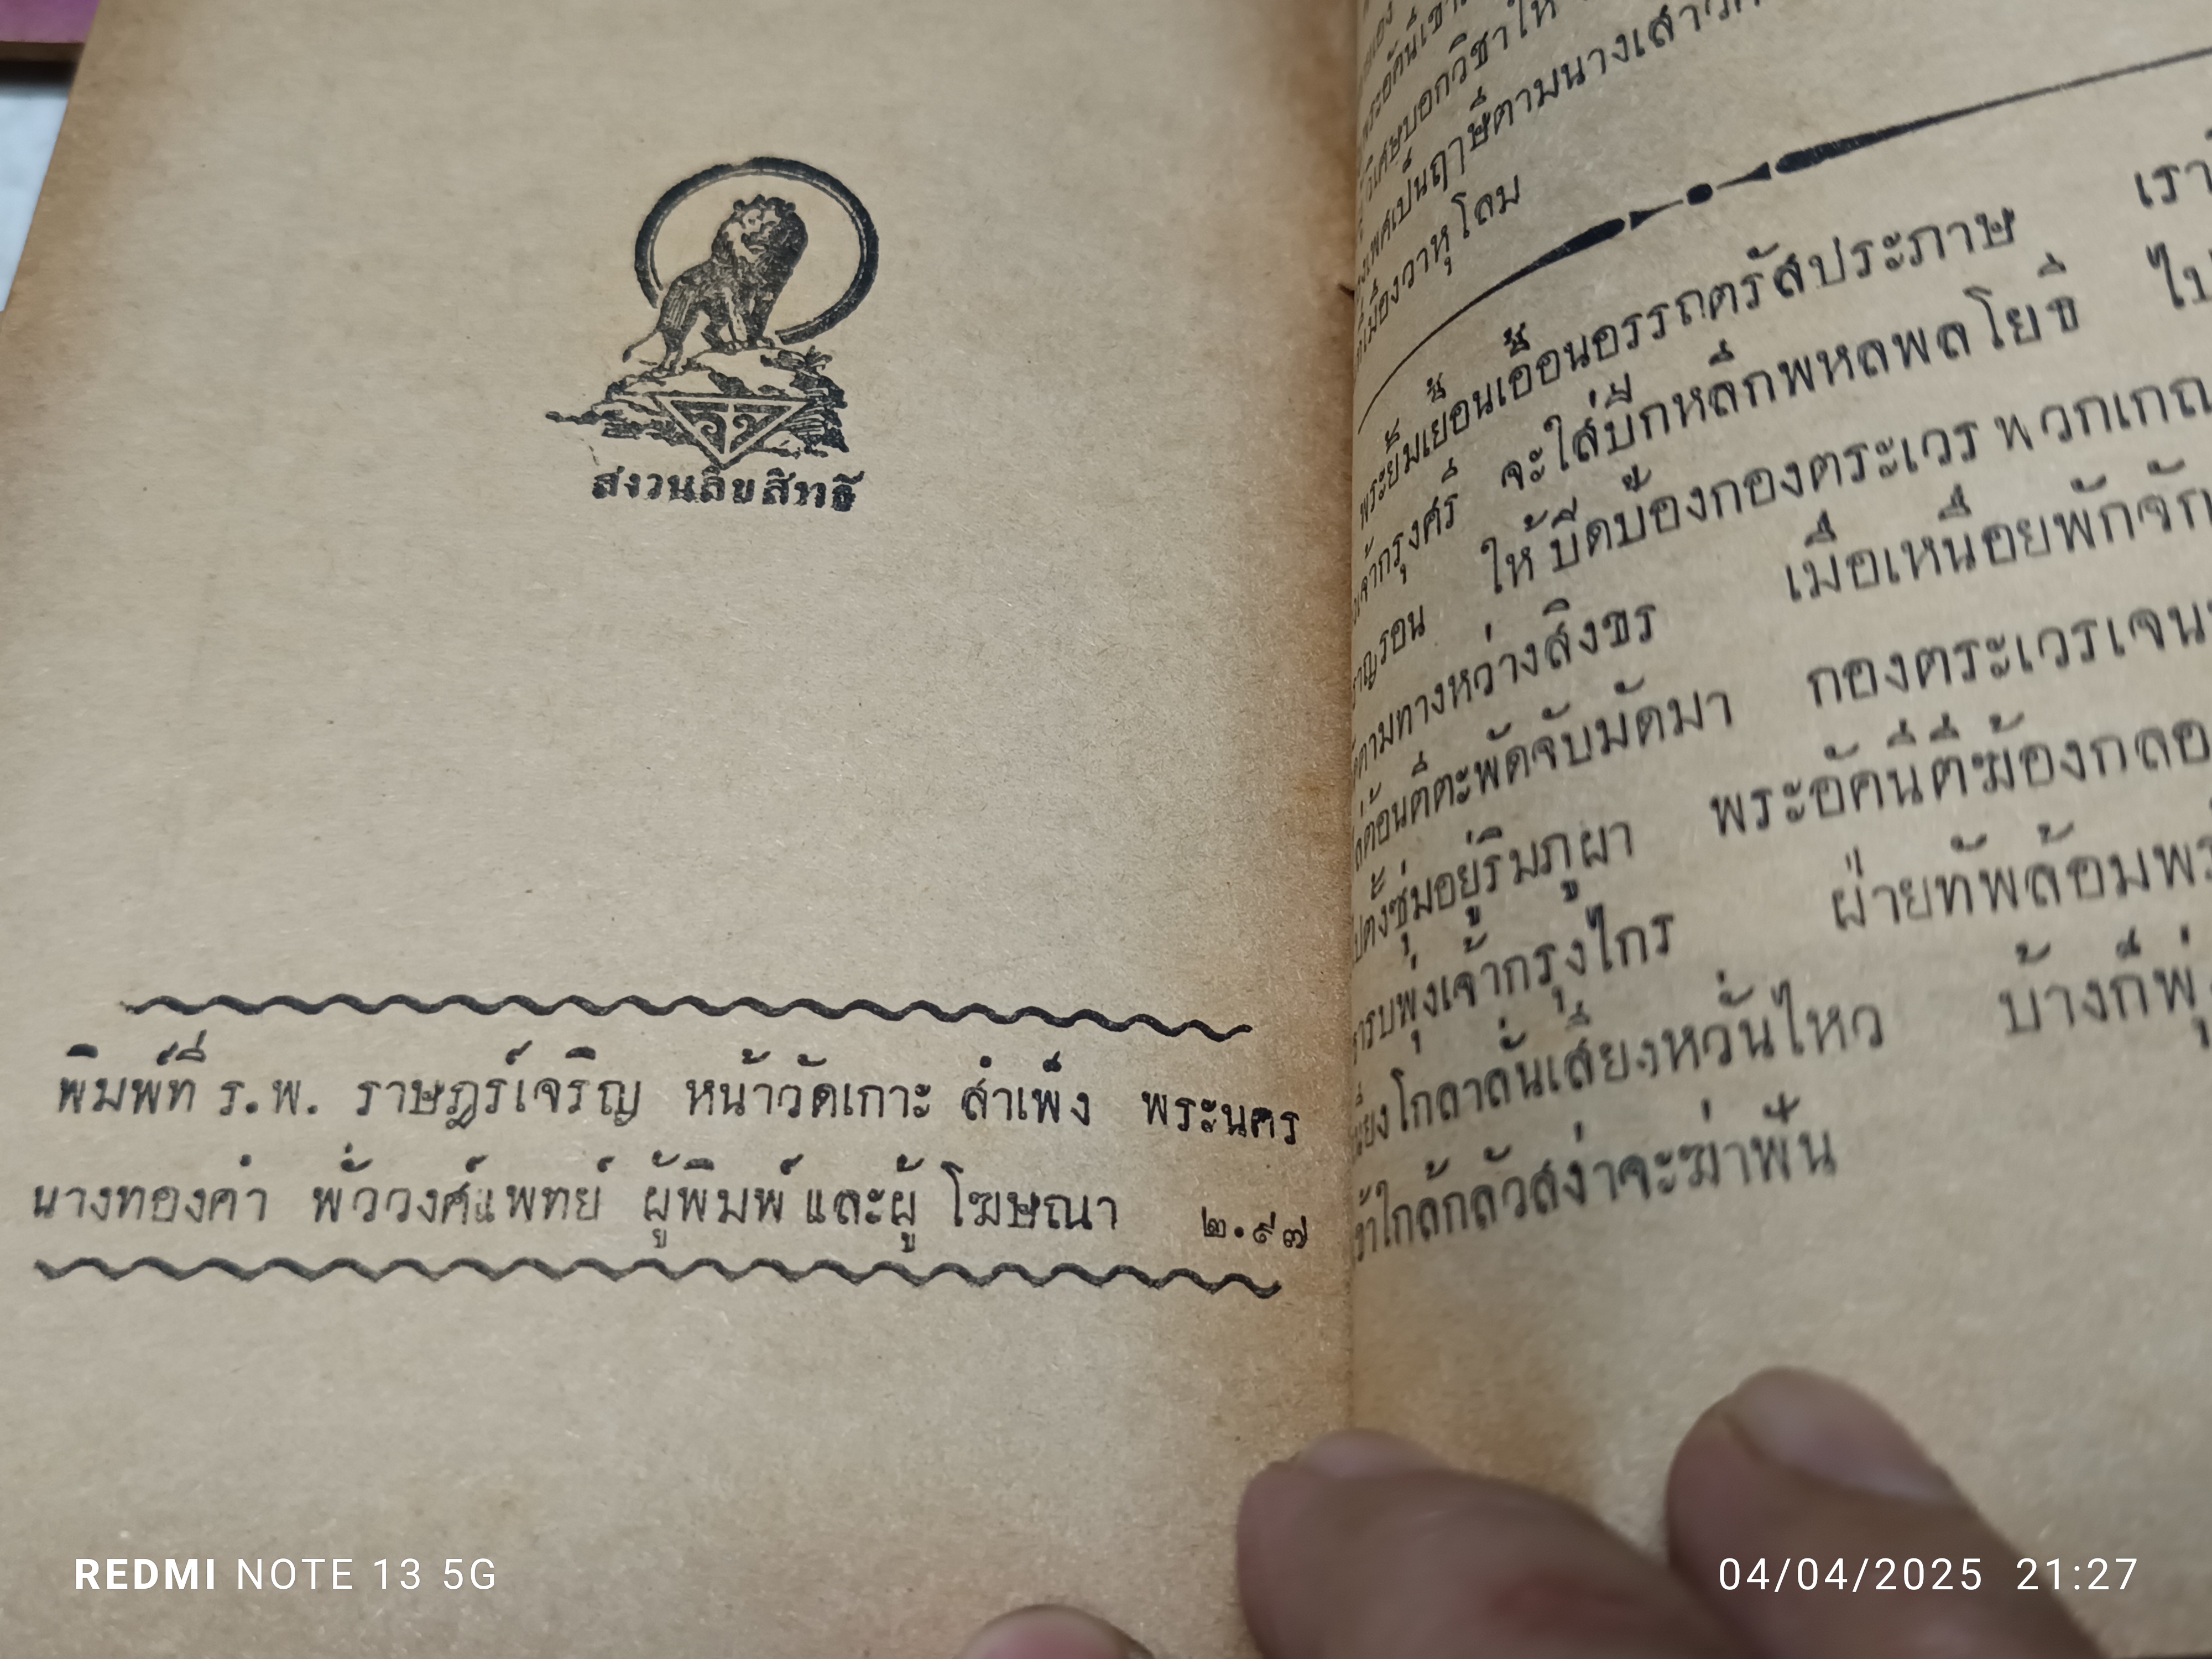 สงวนลิขสิทธิ์
พิมพ์ที่ ร.พ. ราษฎร์เจริญ หน้าวัดเกาะ สำเพ็ง พระนคร
นางทองคำ พั่ววงศ์แพทย์ ผู้พิมพ์และผู้โฆษณา ๒.๙๗
บอกวิชาให้
เป็นฤๅษีตามนางเสาว
เมืองวาหุโลม
พระยิ้มเยื้อนเอื้อนอรรถตรัสประภาษ เรา
เจ้ากรุงศรี จะใส่บีกหลีกพหลพลโยธี ไป
รอน ให้ บีดบ้องกองตระเวร พวกเกณ
ตามทางหว่างสิงขร เมื่อเหนื่อยพักจัก
ต้อนตีตะพัดจับมัดมา กองตระเวรเจน
ไปตั้งซุ่มอยู่ริมภูผา พระอัคนีตีฆ้องกลอ
รบพุ่งเจ้ากรุงไกร ฝ่ายทัพล้อมพ
โกลาลั่นเสียงหวั่นไหว บ้างก็พุ่
ใกล้กลัวสง่าจะฆ่าฟัน
REDMI NOTE 13 5G
04/04/2025 21:27